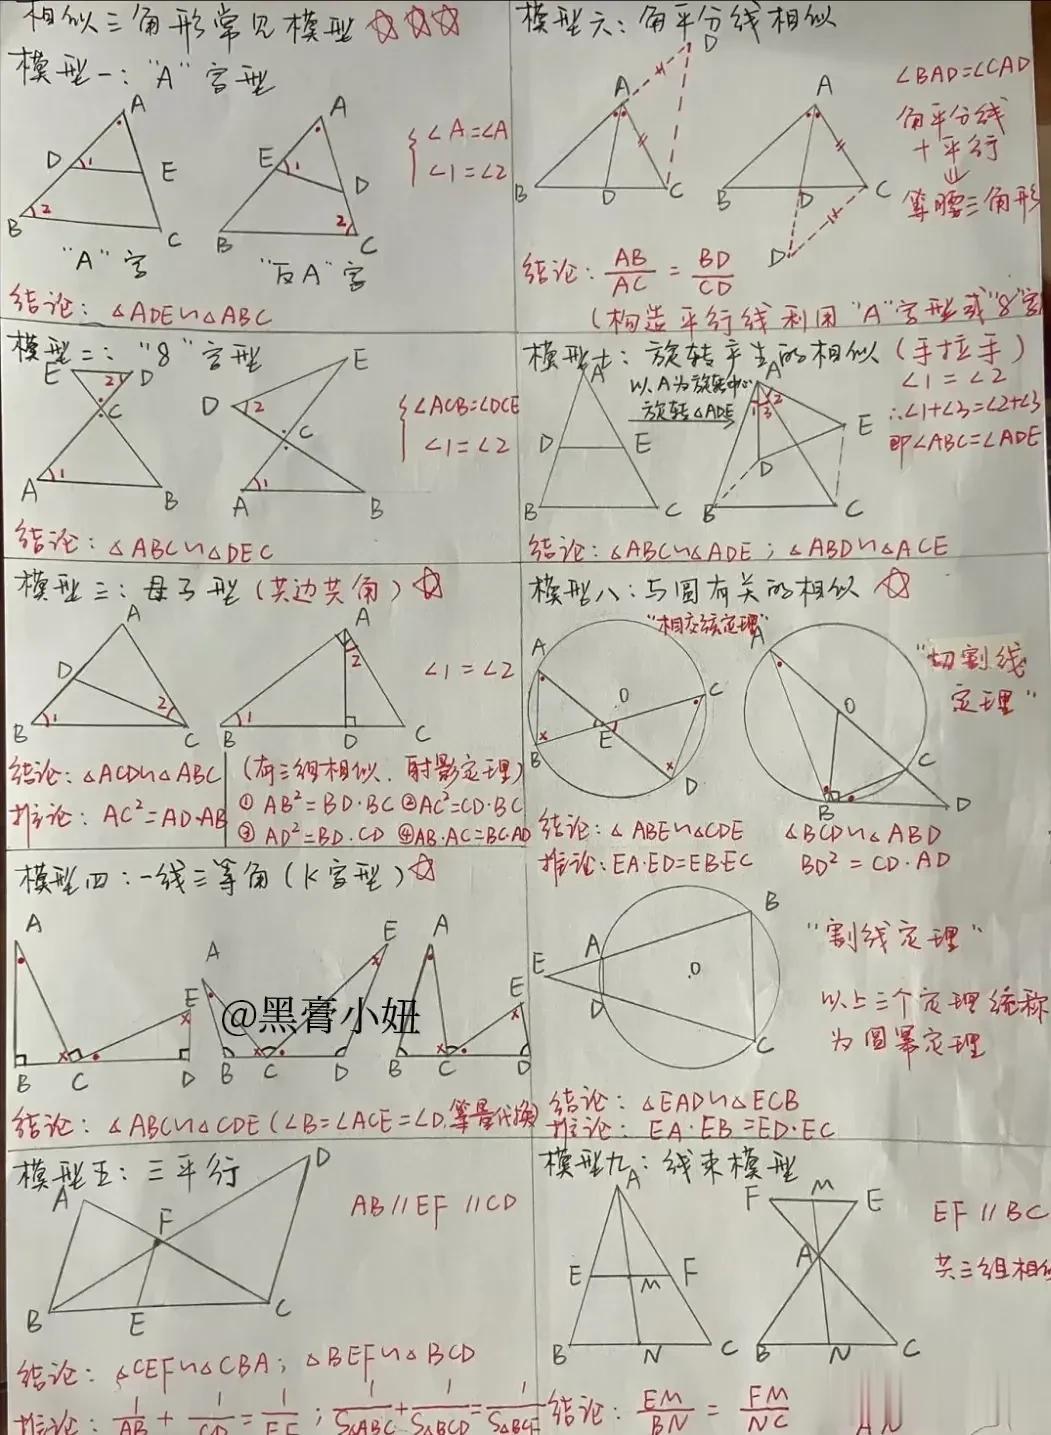 相似三角形常见模型
模型一："A"字型
A
D
1
E
B
2
C
"A"字
A
E
1
D
B
2
C
"反A"字
∠A=∠A
∠1=∠2
结论：△ADE∽△ABC
模型二："8"字型
E
2
D
C
A
1
B
E
D
2
C
A
1
B
∠ACB=∠DCE
∠1=∠2
结论：△ABC∽△DEC
模型三：母子型（共边共角）
A
D
B
1
2
C
A
2
B
1
D
C
∠1=∠2
结论：△ACD∽△ABC
推论：AC²=AD·AB
（有三组相似，射影定理）
① AB²=BD·BC ②AC²=CD·BC
③ AD²=BD·CD ④AB·AC=BC·AD
模型四：一线三等角（K字型）
A
E
B
C
D
A
E
B
C
D
A
E
B
C
D
@黑膏小妞
结论：△ABC∽△CDE（∠B=∠ACE=∠D,等量代换）
模型五：三平行
A
D
F
B
E
C
AB//EF//CD
结论：△CEF∽△CBA；△BEF∽△BCD
推论：1/AB + 1/CD = 1/EF ；1/S△ABC + 1/S△BCD = 1/S△BCF
模型六：角平分线相似
D
A
B
D
C
A
B
D
C
D
∠BAD=∠CAD
角平分线
+平行
⇓
等腰三角形
结论：AB/AC = BD/CD
（构造平行线利用"A"字型或"8"字
模型七：旋转产生的相似（手拉手）
A
D
E
B
C
以A为旋转中心
旋转△ADE
A
1
3
2
E
D
B
C
∠1=∠2
∴∠1+∠3=∠2+∠3
即∠ABC=∠ADE
结论：△ABC∽△ADE；△ABD∽△ACE
模型八：与圆有关的相似
"相交弦定理"
A
O
C
E
B
D
A
O
C
B
D
"切割线
定理"
结论：△ABE∽△CDE
△BCD∽△ABD
推论：EA·ED=EB·EC
BD²=CD·AD
B
A
E
O
D
C
"割线定理"
以上三个定理统称
为圆幂定理
结论：△EAD∽△ECB
推论：EA·EB=ED·EC
模型九：线束模型
A
E
M
F
B
N
C
F
M
E
A
B
N
C
EF//BC
共三组相似
结论：EM/BN = FM/NC